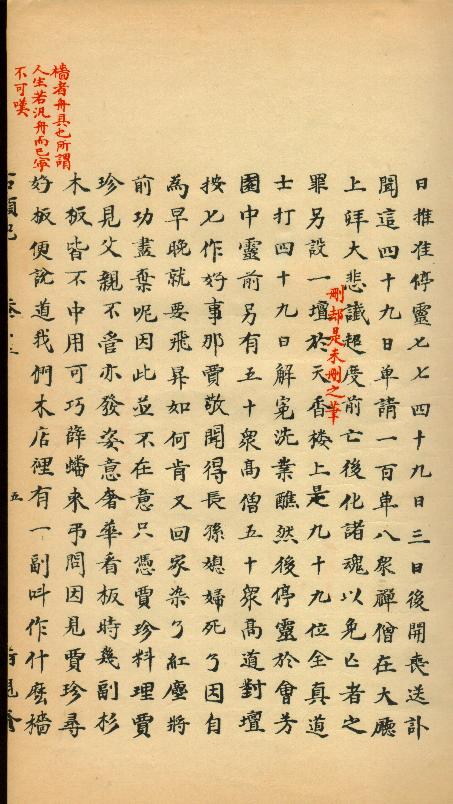 日推准停靈七七四十九日三日後開喪送訃
聞這四十九日单請一百单八眾禪僧在大廳
上拜大悲讖超度前亡後化諸魂以免亡者之
罪另設一壇於天香樓上是九十九位全真道
刪却是未刪之筆
士打四十九日解冤洗業醮然後停靈於會芳
園中靈前另有五十眾高僧五十眾高道對壇
按七作好事那賈敬聞得長孫媳婦死了因自
為早晚就要飛昇如何肯又回家染了紅塵將
前功盡棄呢因此並不在意只憑賈珍料理賈
珍見父親不管亦發姿意奢華看板時幾副杉
木板皆不中用可巧薛蟠來弔問因見賈珍尋
好板便說道我們木店裡有一副叫作什庅檣
檣者舟具也所謂
人生若汎舟而已寧
不可嘆
五